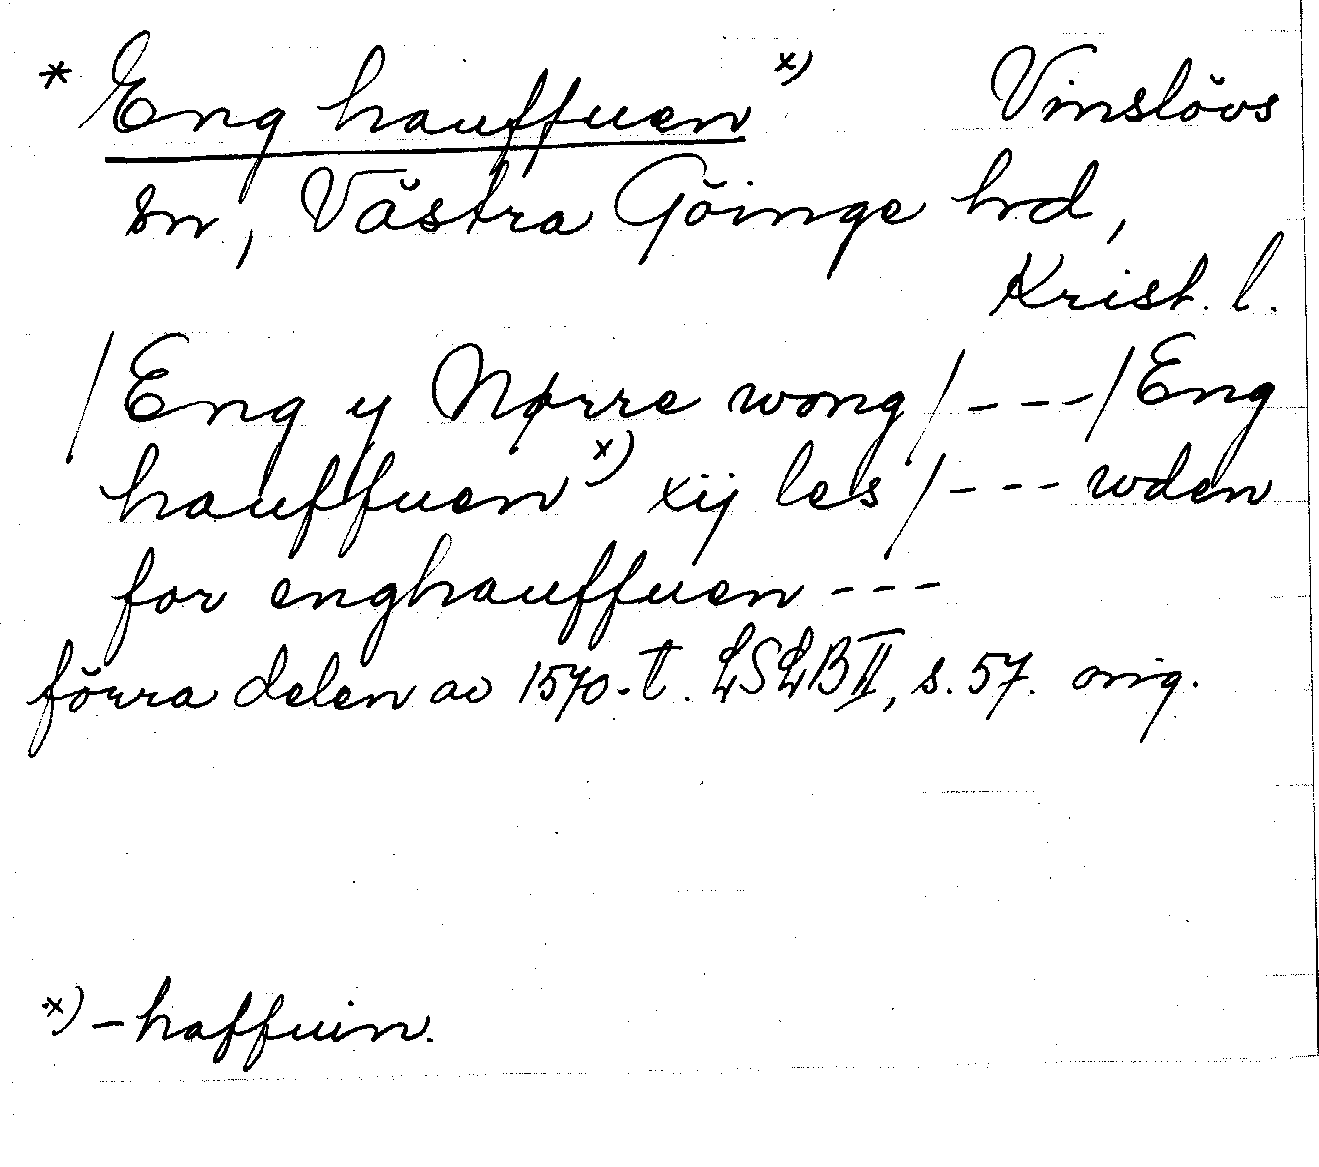 * Eng hauffuen x) Vinslövs
sn, Västra Göinge hd,
Krist. l.
/Eng y Nørre wong/---/Eng
hauffuen x) xij les/--- wden
for enghauffuen ---
förra delen av 1570-t. LSLB II, s. 57. orig.
x) -haffuin.